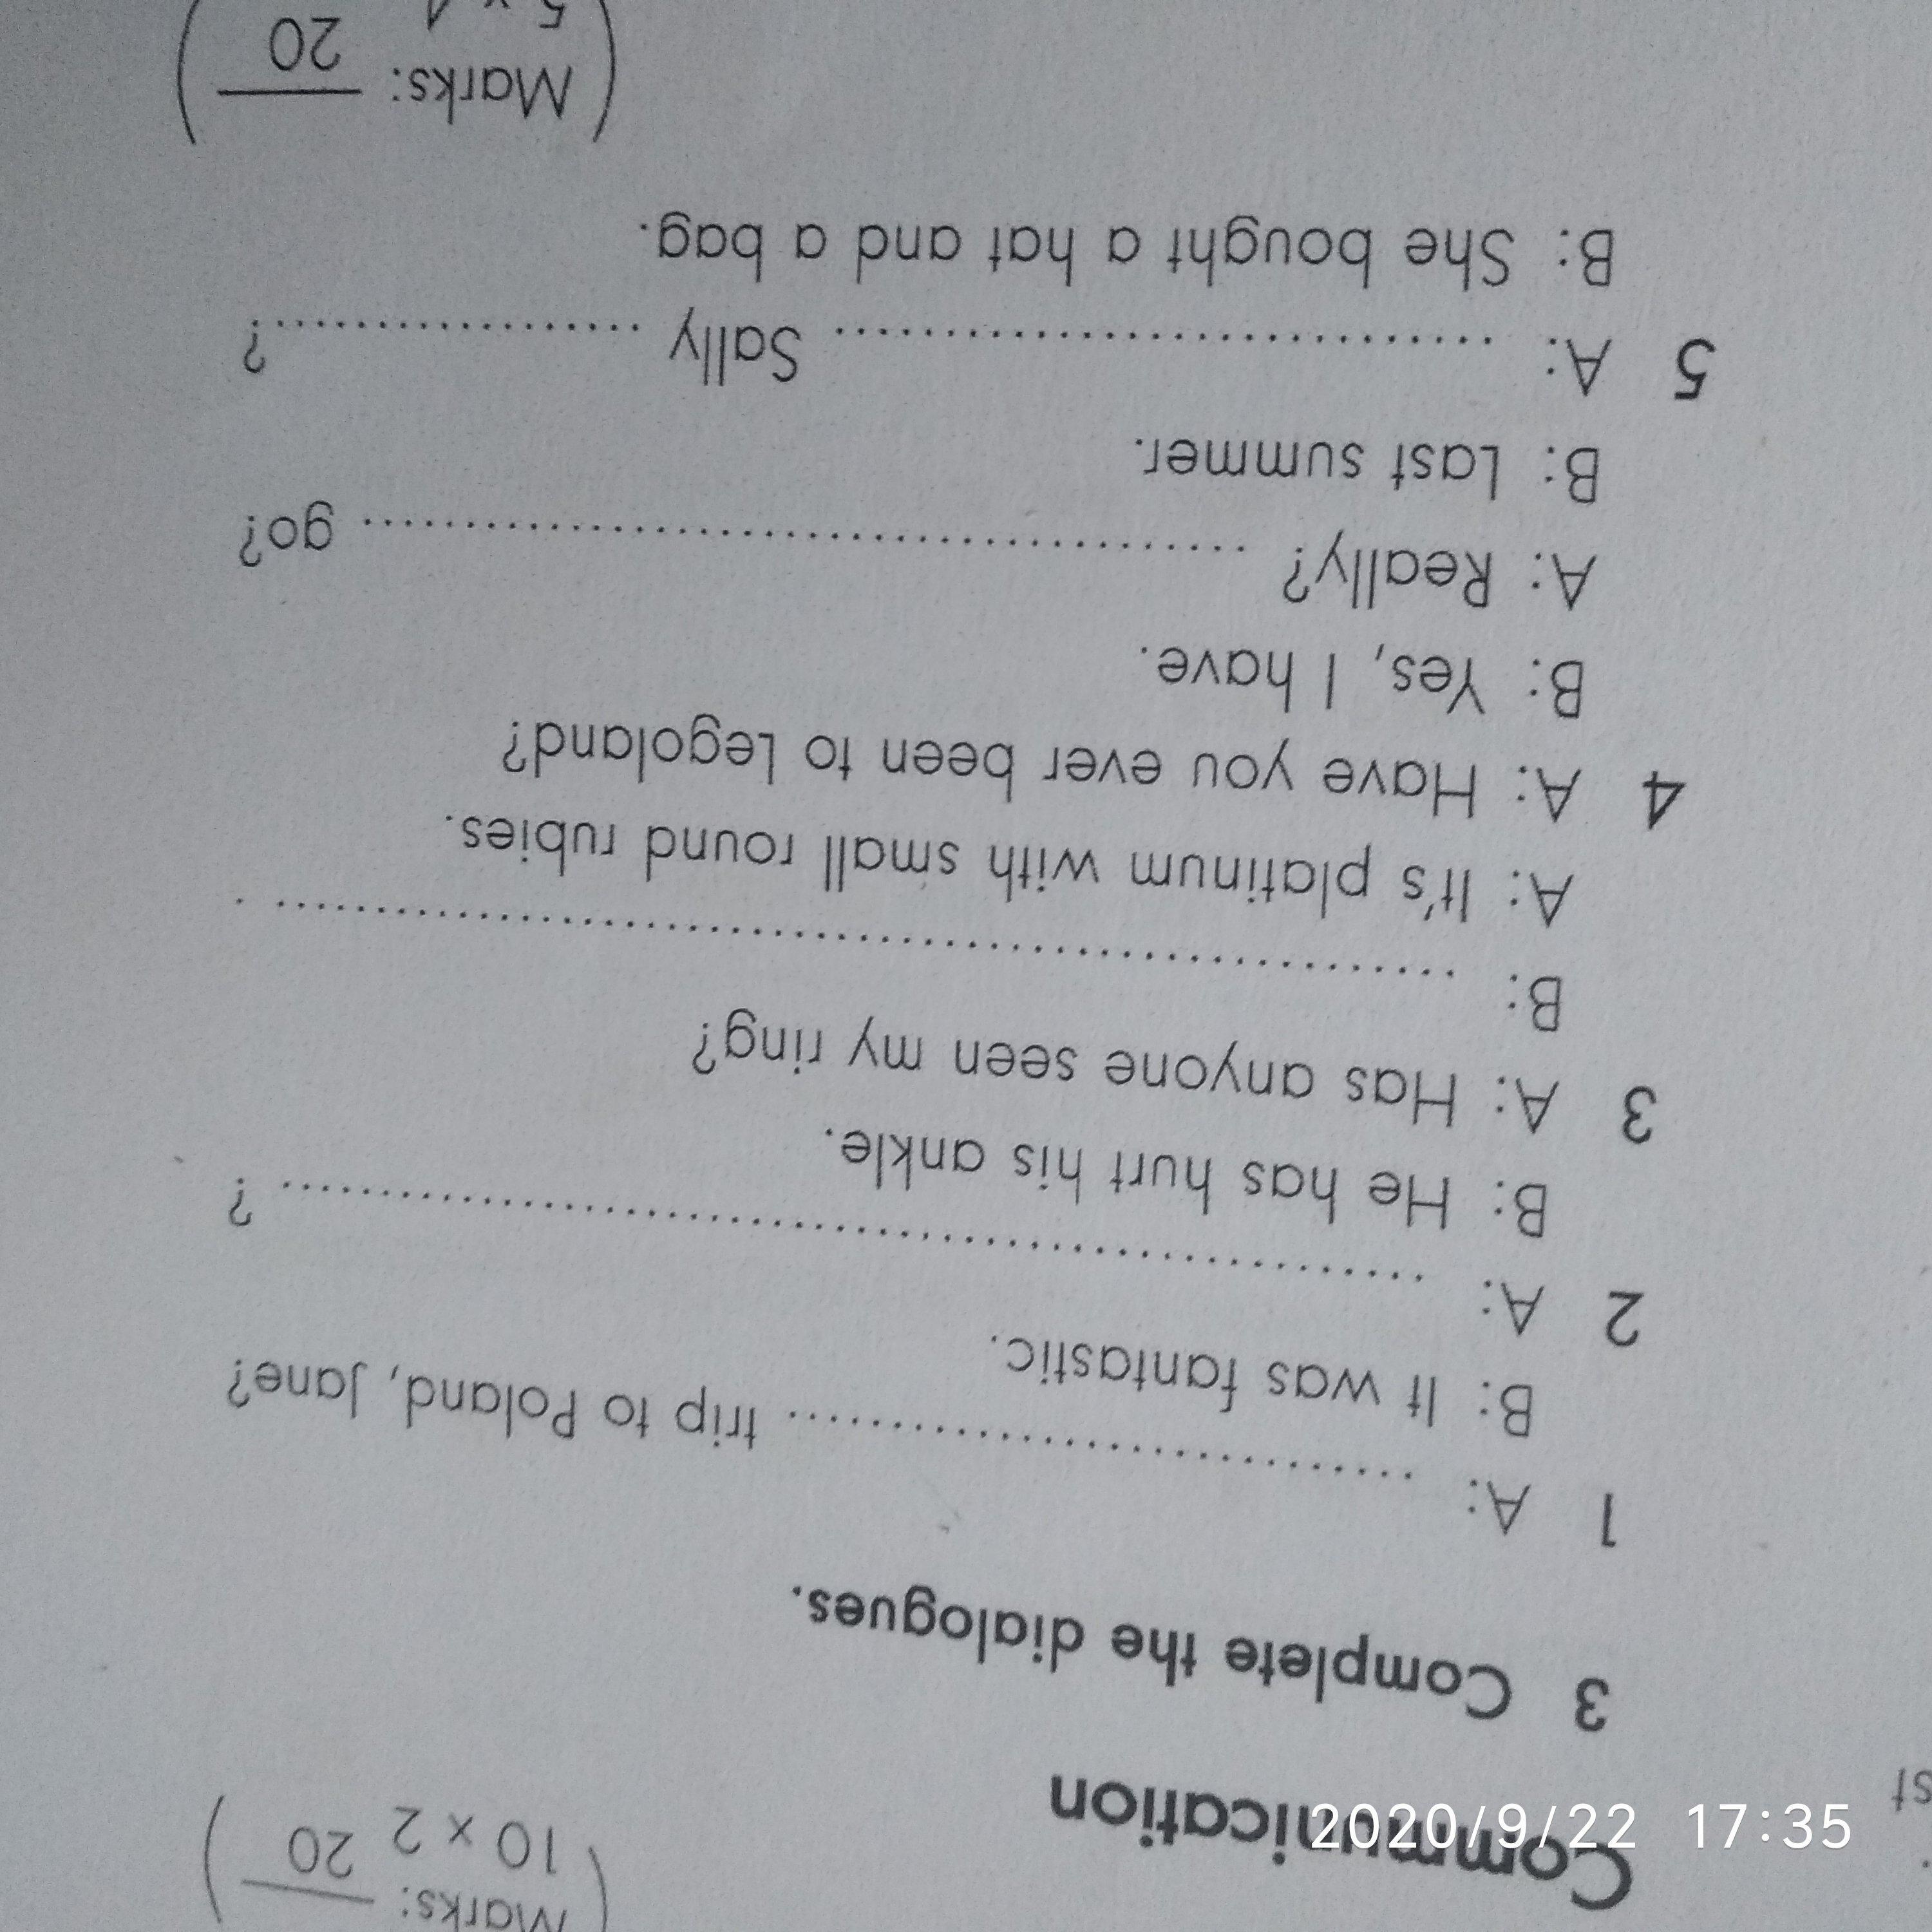 Marks: 20
10 × 2
Communication
3 Complete the dialogues.
1 A: .............................. trip to Poland, Jane?
B: It was fantastic.
2 A: .............................. ?
B: He has hurt his ankle.
3 A: Has anyone seen my ring?
B: .............................. .
A: It's platinum with small round rubies.
4 A: Have you ever been to Legoland?
B: Yes, I have.
A: Really? .............................. go?
B: Last summer.
5 A: .............................. Sally .................... ?
B: She bought a hat and a bag.
Marks: 20
5 × 4
2020/9/22 17:35